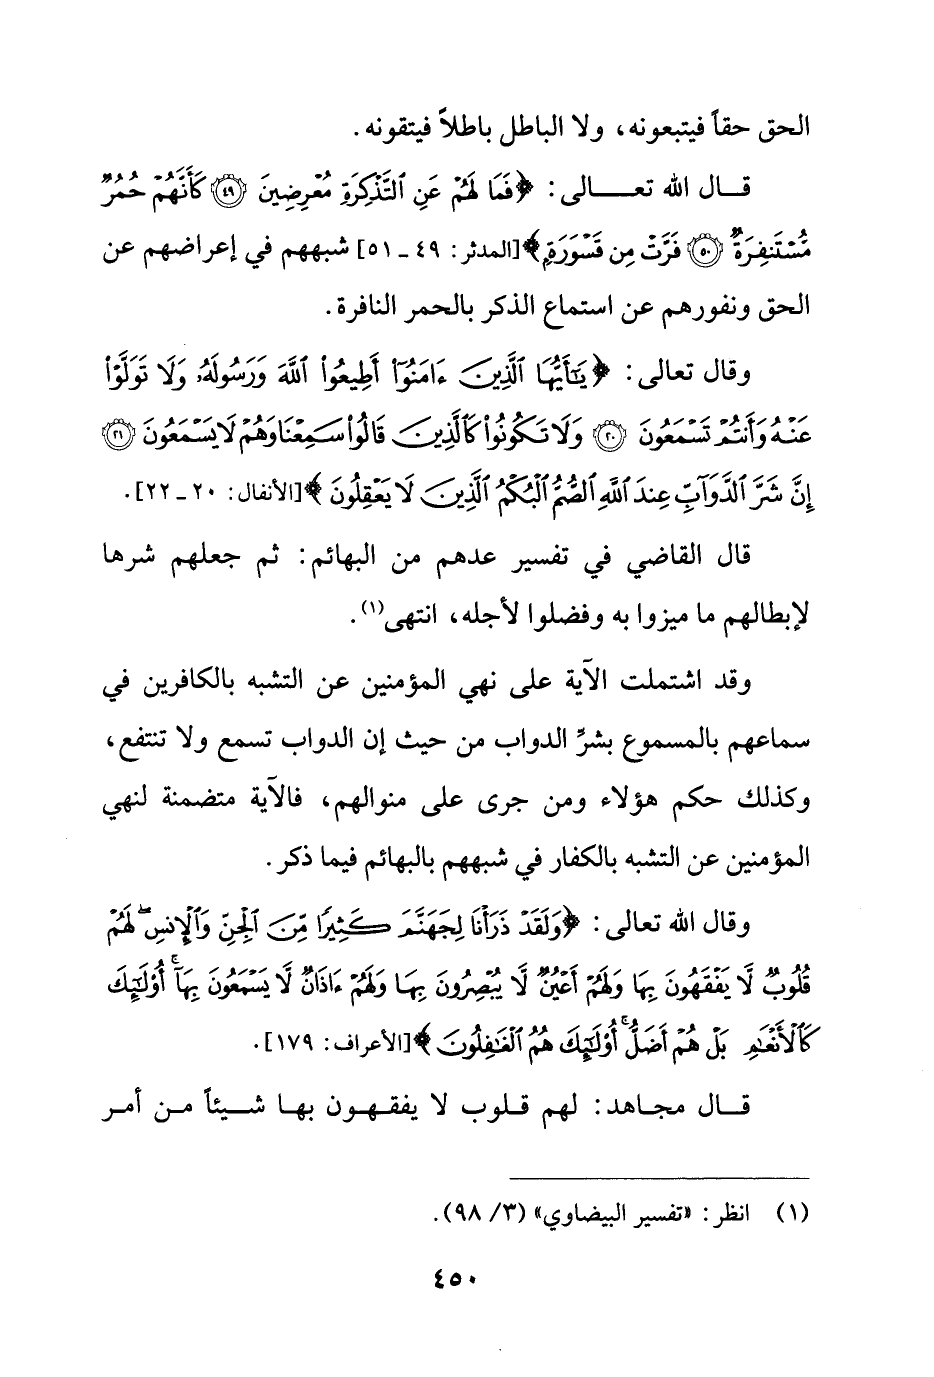 الحق حقاً فيتبعونه، ولا الباطل باطلاً فيتقونه.
قـــال الله تعـــــالى: ﴿فَمَا لَهُمْ عَنِ ٱلتَّذْكِرَةِ مُعْرِضِينَ ۝٤٩ كَأَنَّهُمْ حُمُرٌ
مُّسْتَنفِرَةٌ ۝٥٠ فَرَّتْ مِن قَسْوَرَةٍ﴾[المدثر: ٤٩ ـ ٥١] شبههم في إعراضهم عن
الحق ونفورهم عن استماع الذكر بالحمر النافرة.
وقال تعالى: ﴿يَٰٓأَيُّهَا ٱلَّذِينَ ءَامَنُوٓا۟ أَطِيعُوا۟ ٱللَّهَ وَرَسُولَهُۥ وَلَا تَوَلَّوْا۟
عَنْهُ وَأَنتُمْ تَسْمَعُونَ ۝٢٠ وَلَا تَكُونُوا۟ كَٱلَّذِينَ قَالُوا۟ سَمِعْنَا وَهُمْ لَا يَسْمَعُونَ ۝٢١
إِنَّ شَرَّ ٱلدَّوَآبِّ عِندَ ٱللَّهِ ٱلصُّمُّ ٱلْبُكْمُ ٱلَّذِينَ لَا يَعْقِلُونَ﴾[الأنفال: ٢٠ ـ ٢٢].
قال القاضي في تفسير عدهم من البهائم: ثم جعلهم شرها
لإبطالهم ما ميزوا به وفضلوا لأجله، انتهى(١).
وقد اشتملت الآية على نهي المؤمنين عن التشبه بالكافرين في
سماعهم بالمسموع بشرِّ الدواب من حيث إن الدواب تسمع ولا تنتفع،
وكذلك حكم هؤلاء ومن جرى على منوالهم، فالآية متضمنة لنهي
المؤمنين عن التشبه بالكفار في شبههم بالبهائم فيما ذكر.
وقال الله تعالى: ﴿وَلَقَدْ ذَرَأْنَا لِجَهَنَّمَ كَثِيرًا مِّنَ ٱلْجِنِّ وَٱلْإِنسِ ۖ لَهُمْ
قُلُوبٌ لَّا يَفْقَهُونَ بِهَا وَلَهُمْ أَعْيُنٌ لَّا يُبْصِرُونَ بِهَا وَلَهُمْ ءَاذَانٌ لَّا يَسْمَعُونَ بِهَآ ۚ أُو۟لَٰٓئِكَ
كَٱلْأَنْعَٰمِ بَلْ هُمْ أَضَلُّ ۚ أُو۟لَٰٓئِكَ هُمُ ٱلْغَٰفِلُونَ﴾[الأعراف: ١٧٩].
قـــال مجاهد: لهم قـلوب لا يفقهـون بهـا شـيئاً مـن أمر
(١) انظر: «تفسير البيضاوي» (٣/ ٩٨).
٤٥٠